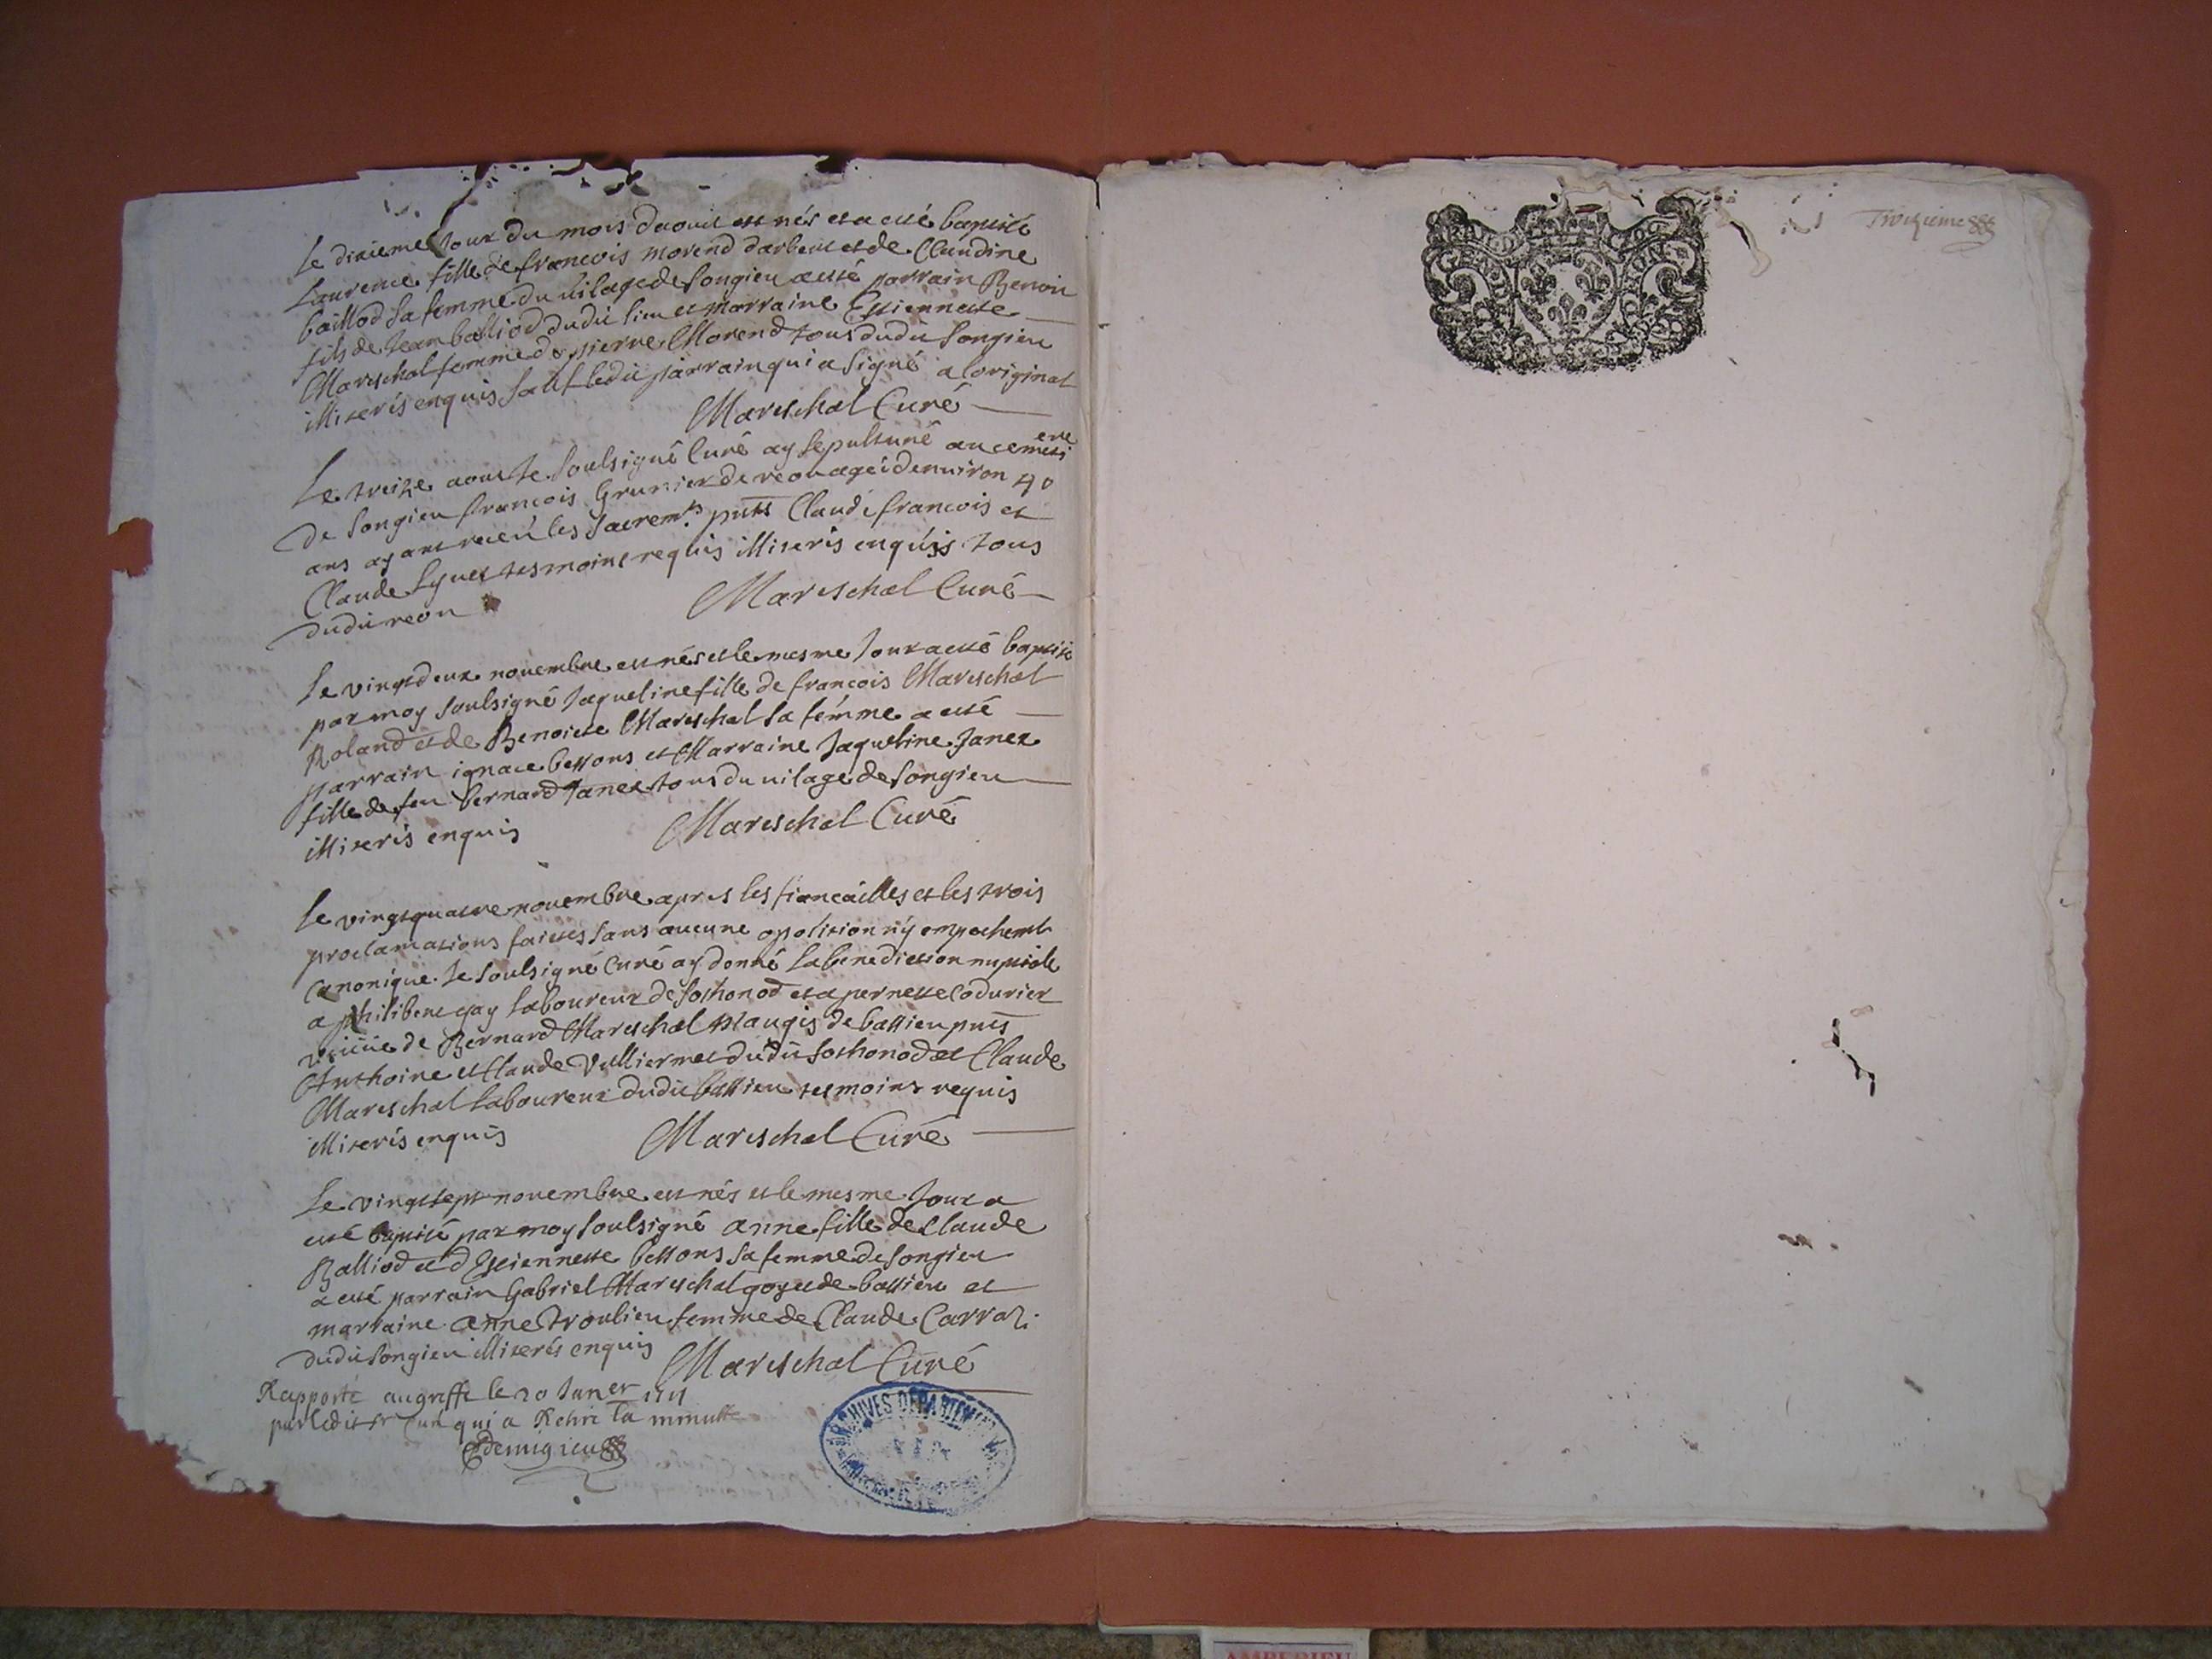 Le dixieme Jour du mois daout est nés et a esté baptisé
Laurence fille de francois morend darbeut et de Claudine
balliod sa femme du vilage de songieu a esté parrain Benoit
fils de Jean balliod dudit lieu et marraine Estiennette
Mareschal femme de pierre Morend tous dudit songieu
illiterés enquis sauf ledit parrain qui a signé a loriginal
Mareschal Curé
Le treize aout Je soubsigné Curé ay sepulturé au cemeti ere
de songieu francois Grunier de reon agéé denviron 40
ans ayant receú les sacremts pnts Claude francois et
Claude Lyuet tesmoins requis illiterés enquis tous
dudit reon
Mareschal Curé
Le vingtdeux novembre est nés et le mesme Jour a esté baptisé
par moy soubsigné Jaqueline fille de francois Mareschal
Roland et de Benoicte Mareschal sa femme a esté
parrain ignace bessons et Marraine Jaqueline Janet
fille de feu bernard Janet tous du vilage de songieu
illiterés enquis
Mareschal Curé
Le vingtquatre novembre apres les fiancailles et les trois
proclamations faictes sans aucune oposition ny empechemt
canonique Je soubsigné Curé ay donné la benediction nuptiale
a philibert gay laboureur de sothonod et a pernette Codurier
veuue de Bernard Mareschal maugis de bassieu pnts
Anthoine et Claude Vulliermet dudit sothonod et Claude
Mareschal laboureur dudit bassieu tesmoins requis
illiterés enquis
Mareschal Curé
Le vingtsept novembre est nés et le mesme Jour a
esté baptisé par moy soubsigné anne fille de Claude
Balliod et d Estiennette bessons sa femme de songieu
a esté parrain Gabriel Mareschal goyet de bassieu et
marraine anne troulieu femme de Claude Carraz
dudit songieu illiterés enquis
Mareschal Curé
Rapporté au greffe le 20 Janer 1711
par ledit sr Curé qui a Retiré la minutte
Demigieu
ARCHIVES DEPARTEMENTALES
AIN
Troizieme
AMBERIEU